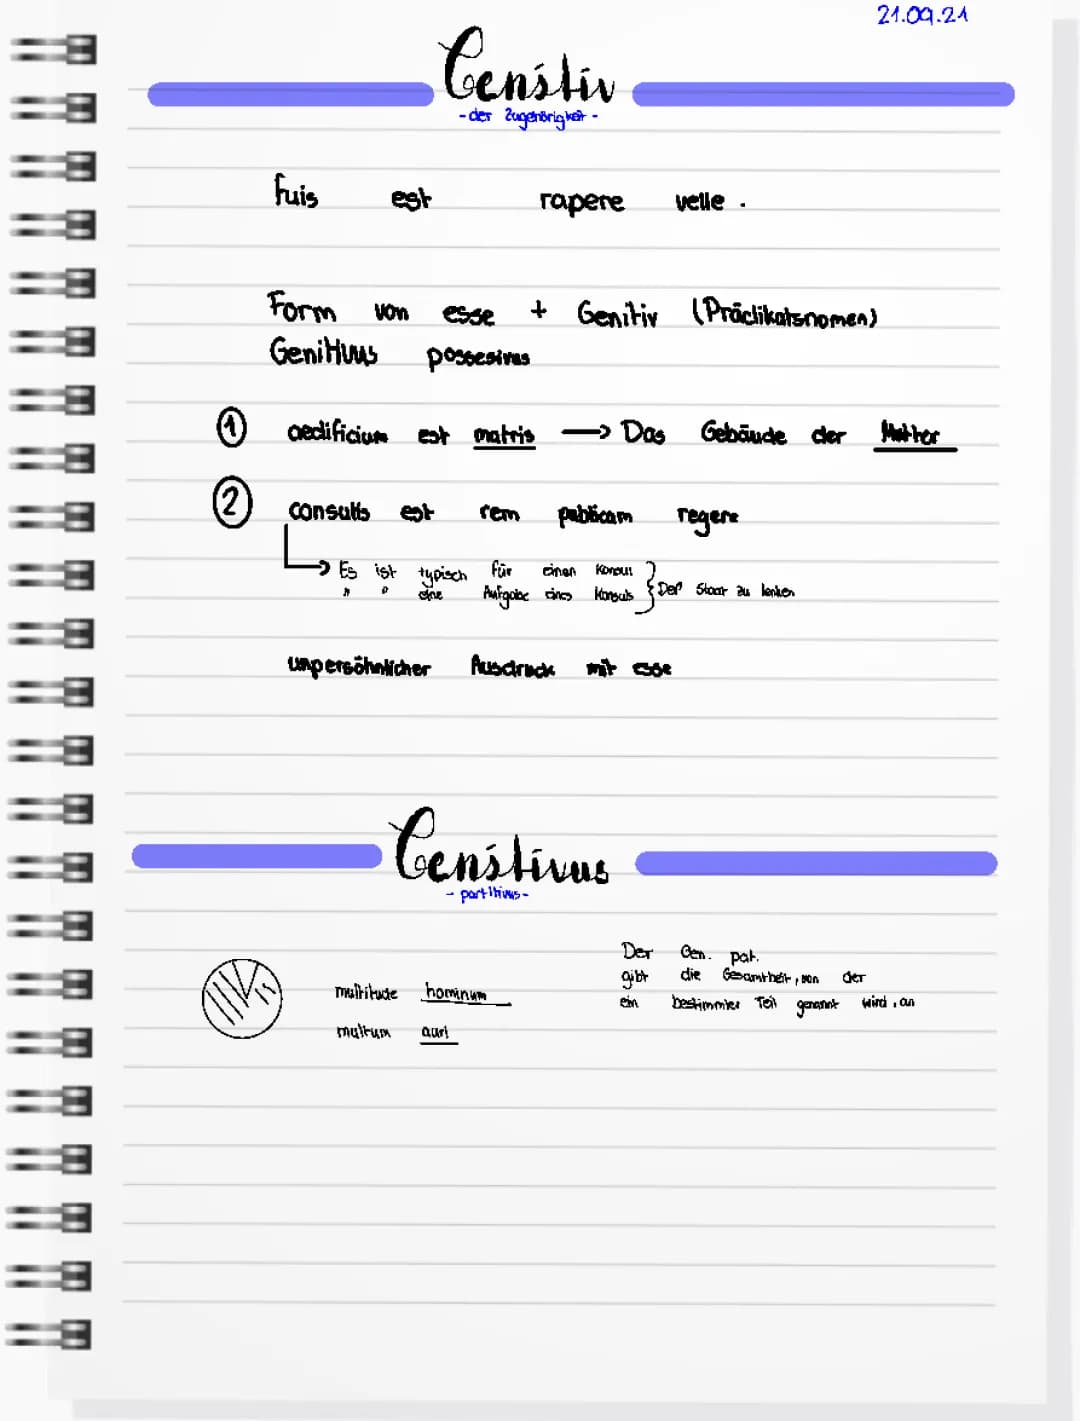 21.09.21
Genitiv
- der Zugehörigkeit -
fuis est rapere velle .
Form von esse + Genitiv (Prädikatsnomen)
Genitivus possesivus
① aedificium est matris → Das Gebäude der Mutter
② consulis est rem publicam regere
Es ist typisch für einen Konsul
" " eine Aufgabe eines Konsuls } Der Staat zu lenken
unpersöhnlicher Ausdruck mit esse
Genitivus
- partitivus -
Der Gen. pat.
gibt die Gesamtheit, von der
ein bestimmter Teil genannt wird, an
multitude hominum
multum auri